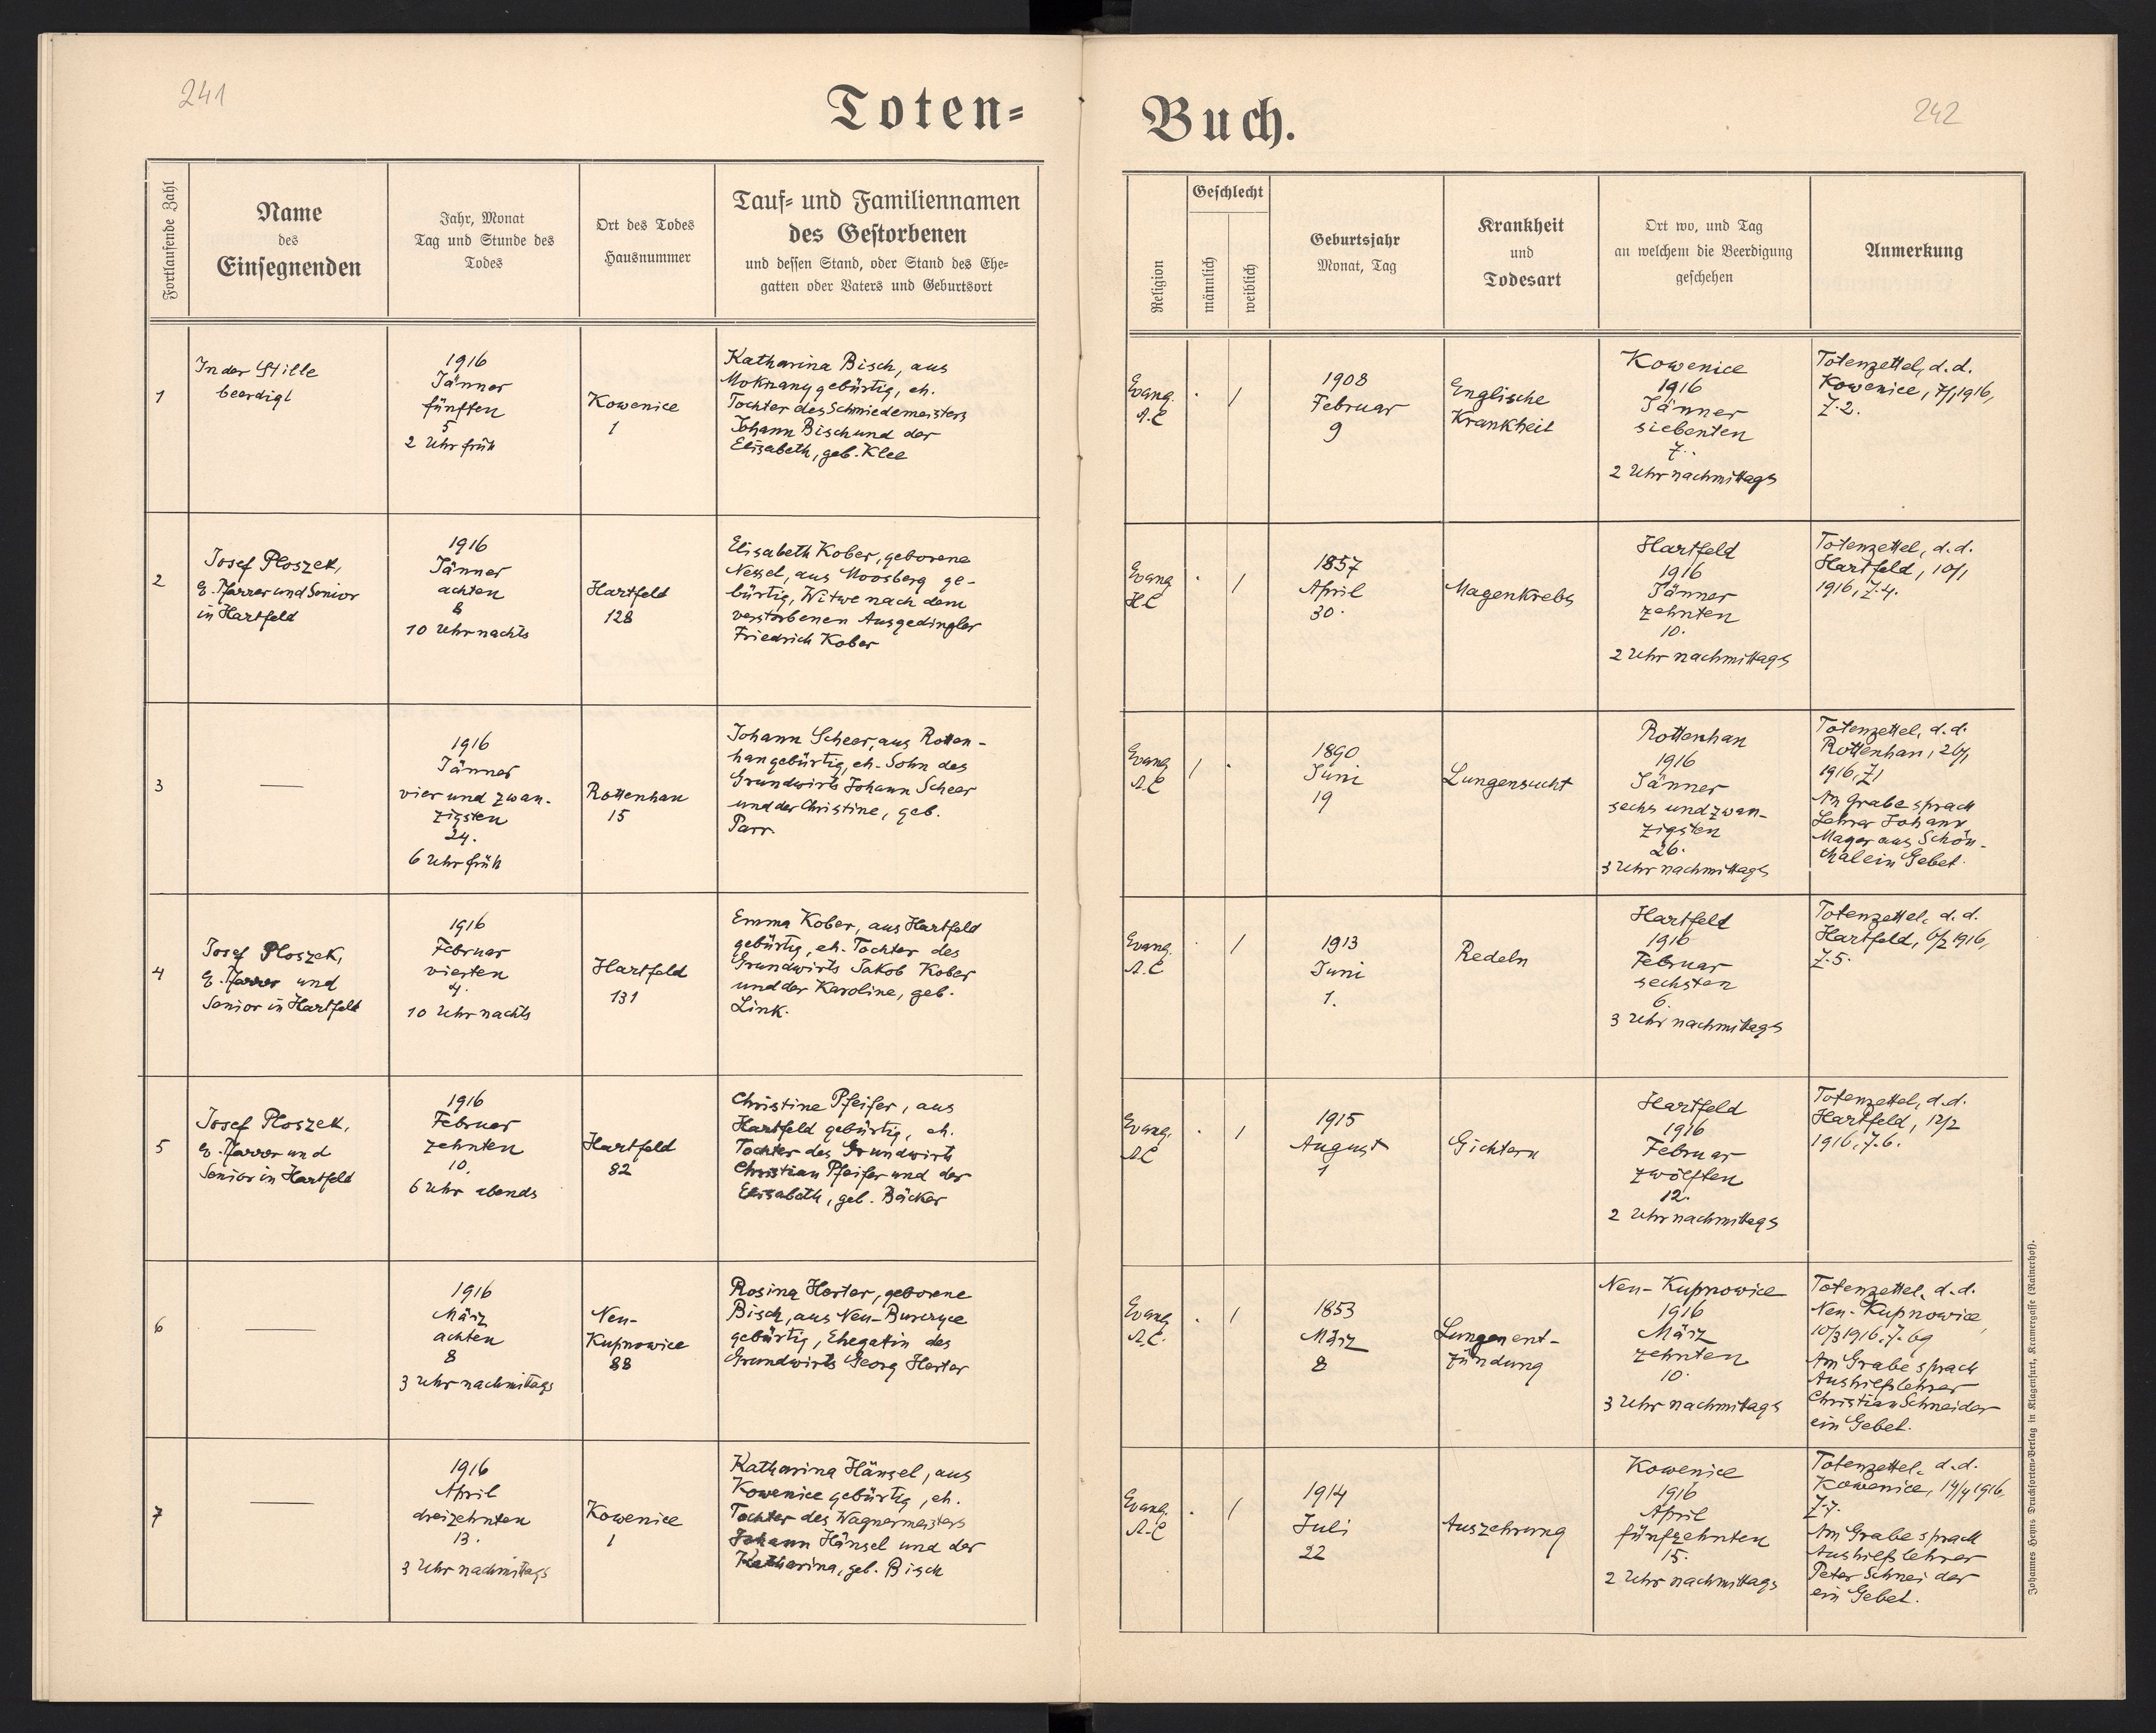 241
Toten=
Fortlaufende Zahl
Name
des
Einsegnenden
Jahr, Monat
Tag und Stunde des
Todes
Ort des Todes
Hausnummer
Tauf= und Familiennamen
des Gestorbenen
und dessen Stand, oder Stand des Ehe=
gatten oder Vaters und Geburtsort
1
In der Stille
beerdigt
1916
Jänner
fünften
5
2 Uhr früh
Kowenice
1
Katharina Bisch, aus
gebürtig, eh.
Tochter des Schmiedemeisters
Johann Bisch und der
Elisabeth, geb. Klee
2
Josef Ploszek,
E. Pfarrer und Senior
in Hartfeld
1916
Jänner
achten
8
10 Uhr nachts
Hartfeld
128
Elisabeth Kober, geborene
Nessel, aus Moosberg ge-
bürtig, Witwe nach dem
verstorbenen Ausgedingler
Friedrich Kober
3
1916
Jänner
vier und zwan-
zigsten
24.
6 Uhr früh
Rottenhan
15
Johann Scheer, aus Rotten-
han gebürtig, eh. Sohn des
Grundwirts Johann Scheer
und der Christine, geb.
Parr
4
Josef Ploszek,
E. Pfarrer und
Senior in Hartfeld
1916
Februar
vierten
4.
10 Uhr nachts
Hartfeld
131
Emma Kober, aus Hartfeld
gebürtig, eh. Tochter des
Grundwirts Jakob Kober
und der Karoline, geb.
Link.
5
Josef Ploszek,
E. Pfarrer und
Senior in Hartfeld
1916
Februar
zehnten
10.
6 Uhr abends
Hartfeld
82
Christine Pfeifer, aus
Hartfeld gebürtig, eh.
Tochter des Grundwirts
Christian Pfeifer und der
Elisabeth, geb. Bäcker
6
1916
März
achten
8
3 Uhr nachmittags
Neu-
Kupnowice
88
Rosina Herter, geborene
Bisch, aus Neu-
gebürtig, Ehegatin des
Grundwirts Georg Herter
7
1916
April
dreizehnten
13.
3 Uhr nachmittags
Kowenice
1
Katharina Hänsel, aus
Kowenice gebürtig, eh.
Tochter des Wagnermeisters
Johann Hänsel und der
Katharina, geb. Bisch
Buch.
242
Religion
Geschlecht
männlich
weiblich
Geburtsjahr
Monat, Tag
Krankheit
und
Todesart
Ort wo, und Tag
an welchem die Beerdigung
geschehen
Anmerkung
Evang.
A.C
. /
1908
Februar
9
Englische
Krankheit
Kowenice
1916
Jänner
siebenten
7.
2 Uhr nachmittags
Totenzettel, d.d.
Kowenice, 7/1 1916,
Z. 2.
Evang
H.C
. /
1857
April
30.
Magenkrebs
Hartfeld
1916
Jänner
zehnten
10.
2 Uhr nachmittags
Totenzettel, d.d.
Hartfeld, 10/1
1916, Z. 4.
Evang
A.C
/ .
1890
Juni
19
Lungensucht
Rottenhan
1916
Jänner
sechs und zwan-
zigsten
26.
3 Uhr nachmittags
Totenzettel, d.d.
Rottenhan, 26/1
1916, Z1
Am Grabe sprach
Lehrer Johann
Mager aus Schön-
thal ein Gebet.
Evang.
A.C
. /
1913
Juni
1.
Redeln
Hartfeld
1916
Februar
sechsten
6.
3 Uhr nachmittags
Totenzettel, d.d.
Hartfeld, 6/2 1916,
Z. 5.
Evang.
A.C
. /
1915
August
1
Gichtern
Hartfeld
1916
Februar
zwölften
12.
2 Uhr nachmittags
Totenzettel, d.d.
Hartfeld, 12/2
1916, Z. 6.
Evang.
A.C.
. /
1853
März
8
Lungenent-
zündung
Neu-Kupnowice
1916
März
zehnten
10.
3 Uhr nachmittags
Totenzettel, d.d.
Neu-Kupnowice,
10/3 1916, Z. 69
Am Grabe sprach
Aushilfslehrer
Christian Schneider
ein Gebet.
Evang.
A.C
. /
1914
Juli
22
Auszehrung
Kowenice
1916
April
fünfzehnten
15.
2 Uhr nachmittags
Totenzettel, d.d.
Kowenice, 14/4 1916,
Z. 7.
Am Grabe sprach
Aushilfslehrer
Peter Schneider
ein Gebet.
Johannes Heyns Drucksorten=Verlag in Klagenfurt, Kramergasse (Rainerhof).